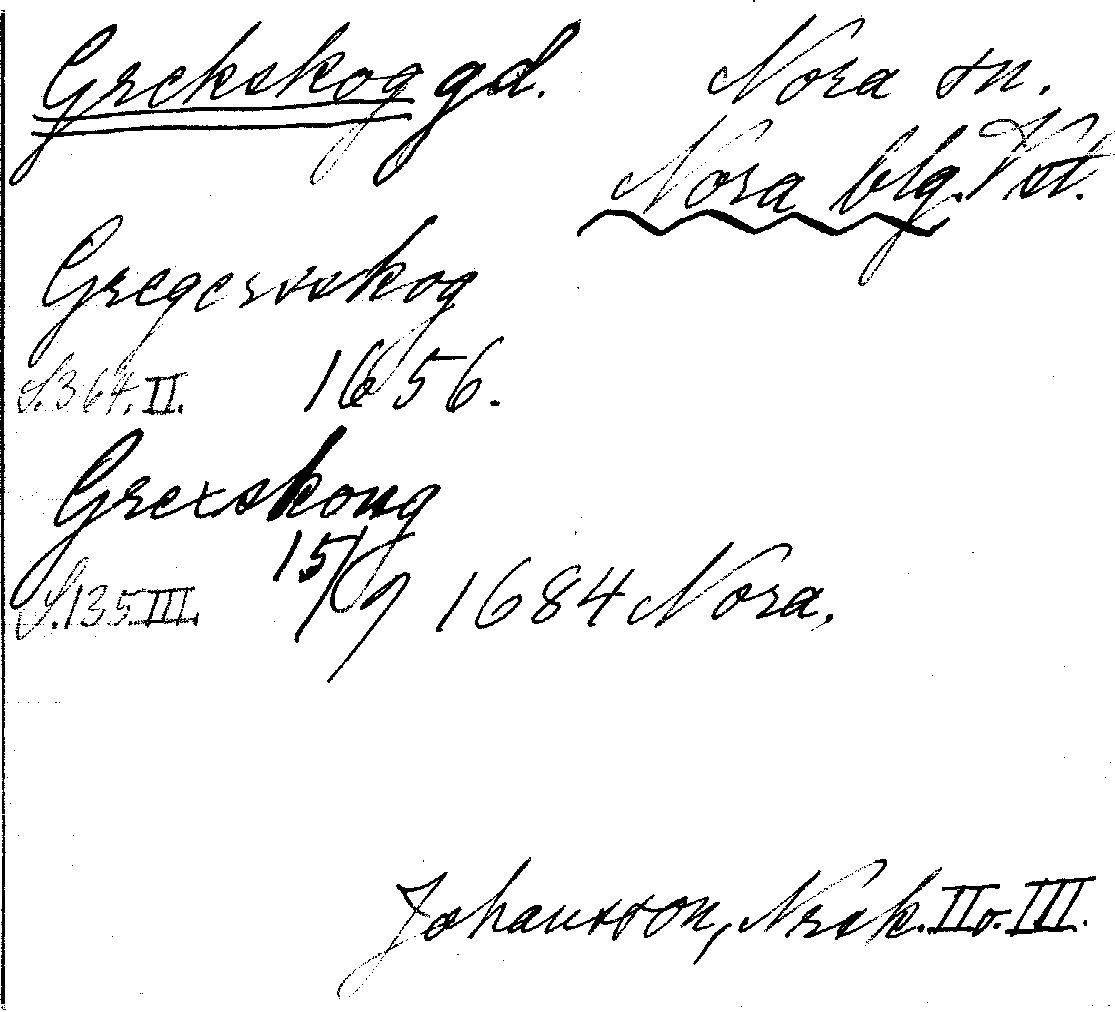 Grekskog gd. Nora sn.
Nora blg. Vst.
Gregersskog
S. 364. II. 1656.
Grexskoug
S. 135. III. 15/9 1684 Nora.
Johansson, Nrsk. II o. III.